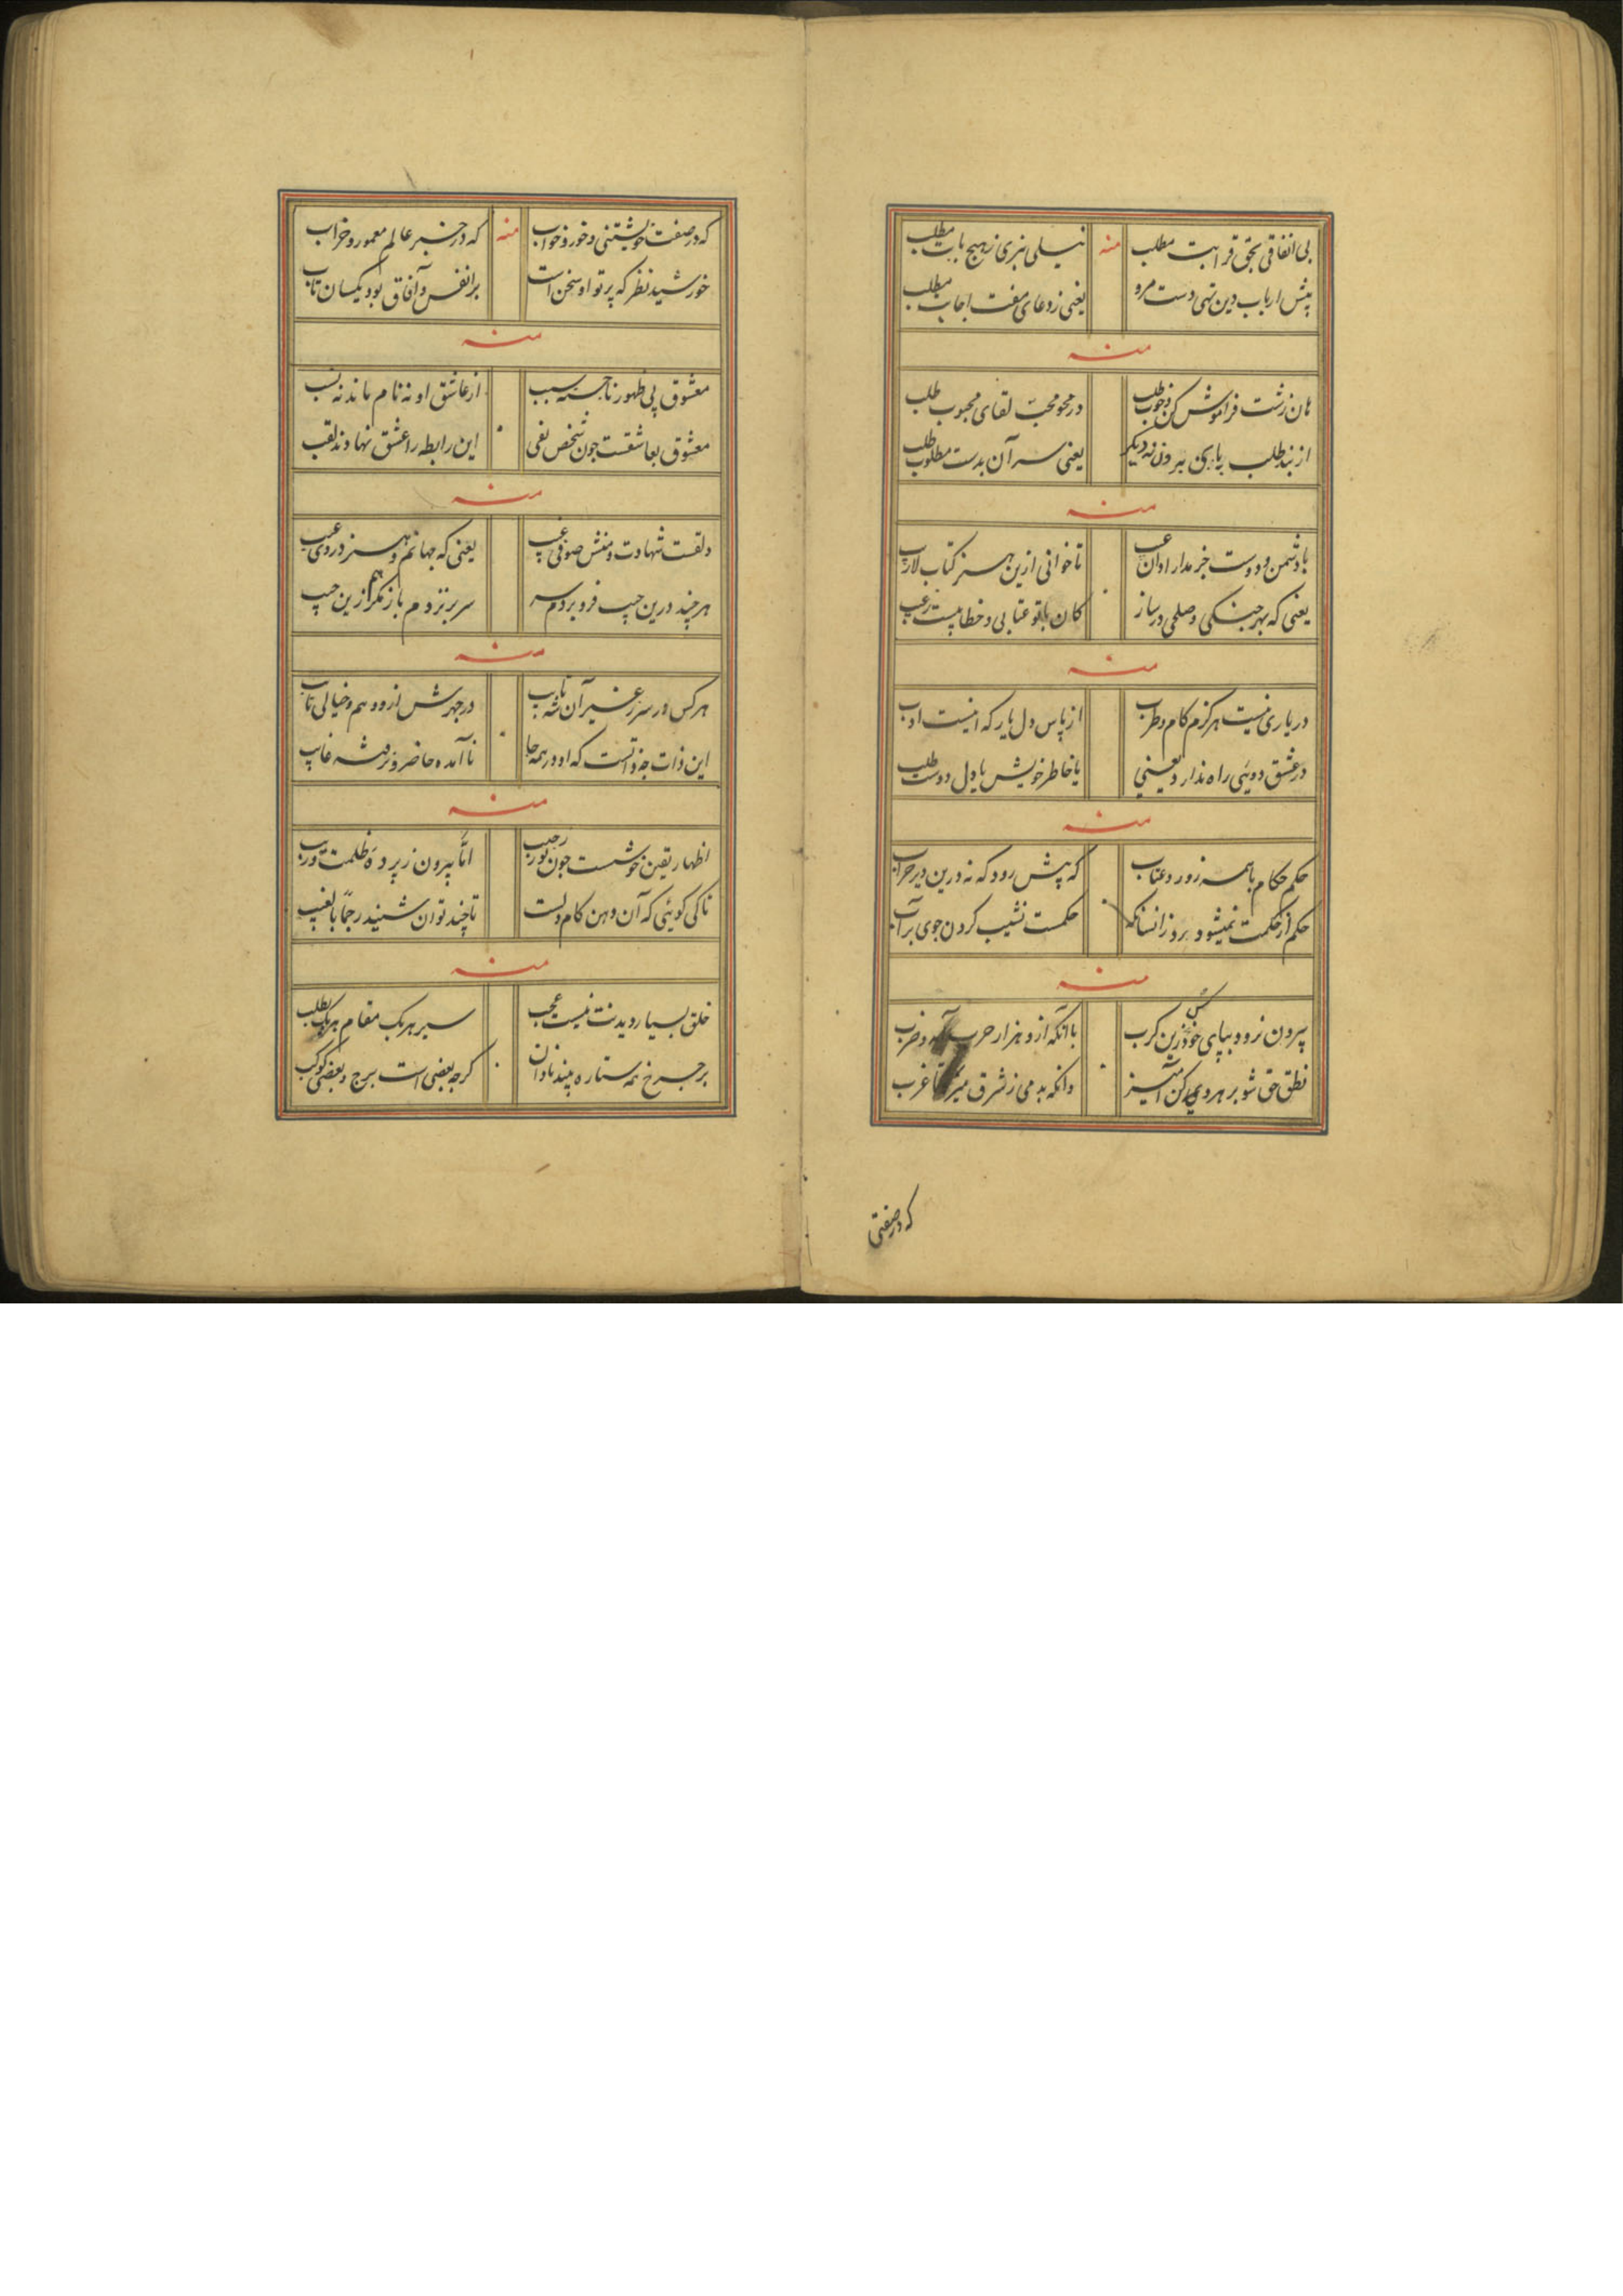 بی اتفاقی بحق قرابت مطلب منه نیلی نبری ز هیچ بابت مطلب
پیش ارباب دین تهی دست مرو یعنی ز دعای مفت اجابت مطلب
منه
هان زشت فراموش کن و خوب طلب در محو محبّ لقای محبوب طلب
از بند طلب یعنی سر آن بدست مطلوب طلب
منه
با دشمن و دوست جز مدار تا خوانی ازین کتاب لاریب
یعنی که بهر جنگی و صلحی در ساز کان با تو عتابی و خطابیست ز غیب
منه
در یاری نیست هرگزم کام و طرب از پاس دل یار که اینست ادب
در عشق دوئی راه ندارد یعنی یا خاطر خویش یا دل دوست طلب
منه
حکم حکام با همه زور و عتاب که پیش رود که نه درین دیر خراب
حکم از حکمت نمیشود حکمست نشیب کردن جوی بر آب
منه
بیرون نرود بپای خود زین کرب با آنکه ازو هزار حرب و ضرب
نطق حق شو وانکه بدمی ز شرق تا غرب
که در صفتی
که در صفت خویشتنی و خور و خواب منه که در خبر عالم معمور و خراب
خورشید نظر که پرتو او سخن است بر انفس و آفاق بود یکسان تاب
منه
معشوق پی ظهور ناجسته سبب از عاشق او نه نام ماند نه نسب
معشوق بعاشقست چون شخص نفی این رابطه را عشق نهادند لقب
منه
دلقست شهادت و منش صوفی غیب یعنی که جهانم و هنر در وی عیب
هر چند درین جیب فرو بردم سر سر بر نزدم باز مگر هم ازین جیب
منه
هر کس در سر ز غیر آن شه تایب در جهرش از و هم و خیالی تاب
این ذات خداست که او در همه جا ناآمده حاضر و نرفته غایب
منه
اظهار یقین خوشست چون نور امّا بیرون ز پردهٔ ظلمت و ریب
تا کی گوئی که آن دهن کام دلست تا چند توان شنید رجمًا بالغیب
منه
خلق بسیار دیدنت نیست عجب سیر هر یک مقام هر یک بطلب
بر چرخ نه ستاره بیند نادان گرچه بعضی است برج و بعضی کوکب